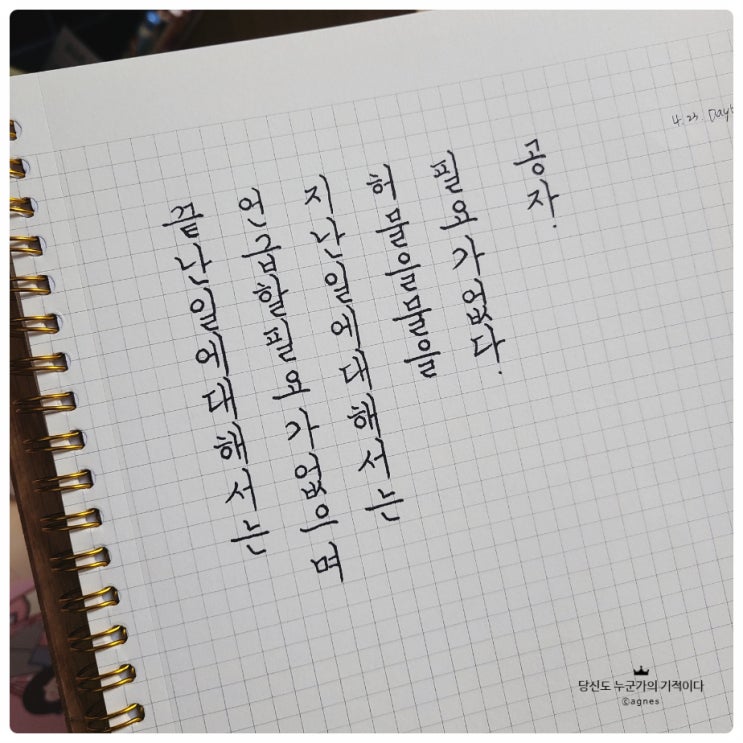 끝난일에대해서는
언급할필요가없으며
지난일에대해서는
허물을물을
필요가없다.
공자.
4. 23. Day
당신도 누군가의 기적이다
ⓒagnes